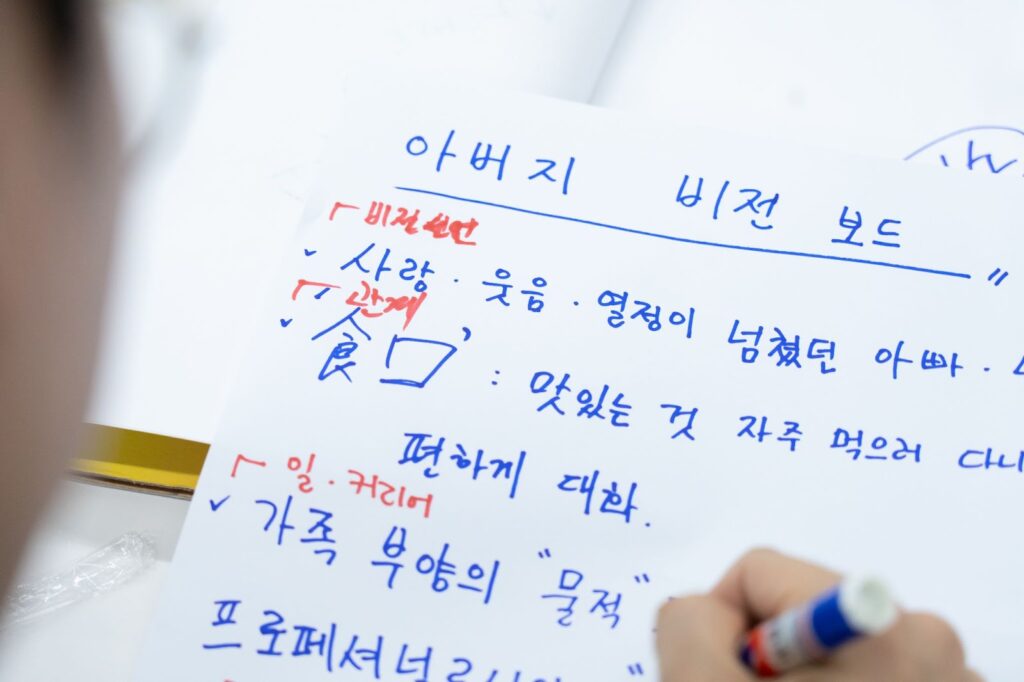 아버지 비전 보드
비전선언
✓ 사랑 · 웃음 · 열정이 넘쳤던 아빠 ·
관계
✓ '食口' : 맛있는 것 자주 먹으러 다니
편하게 대화.
일 · 커리어
✓ 가족 부양의 "물적"
프로페셔널